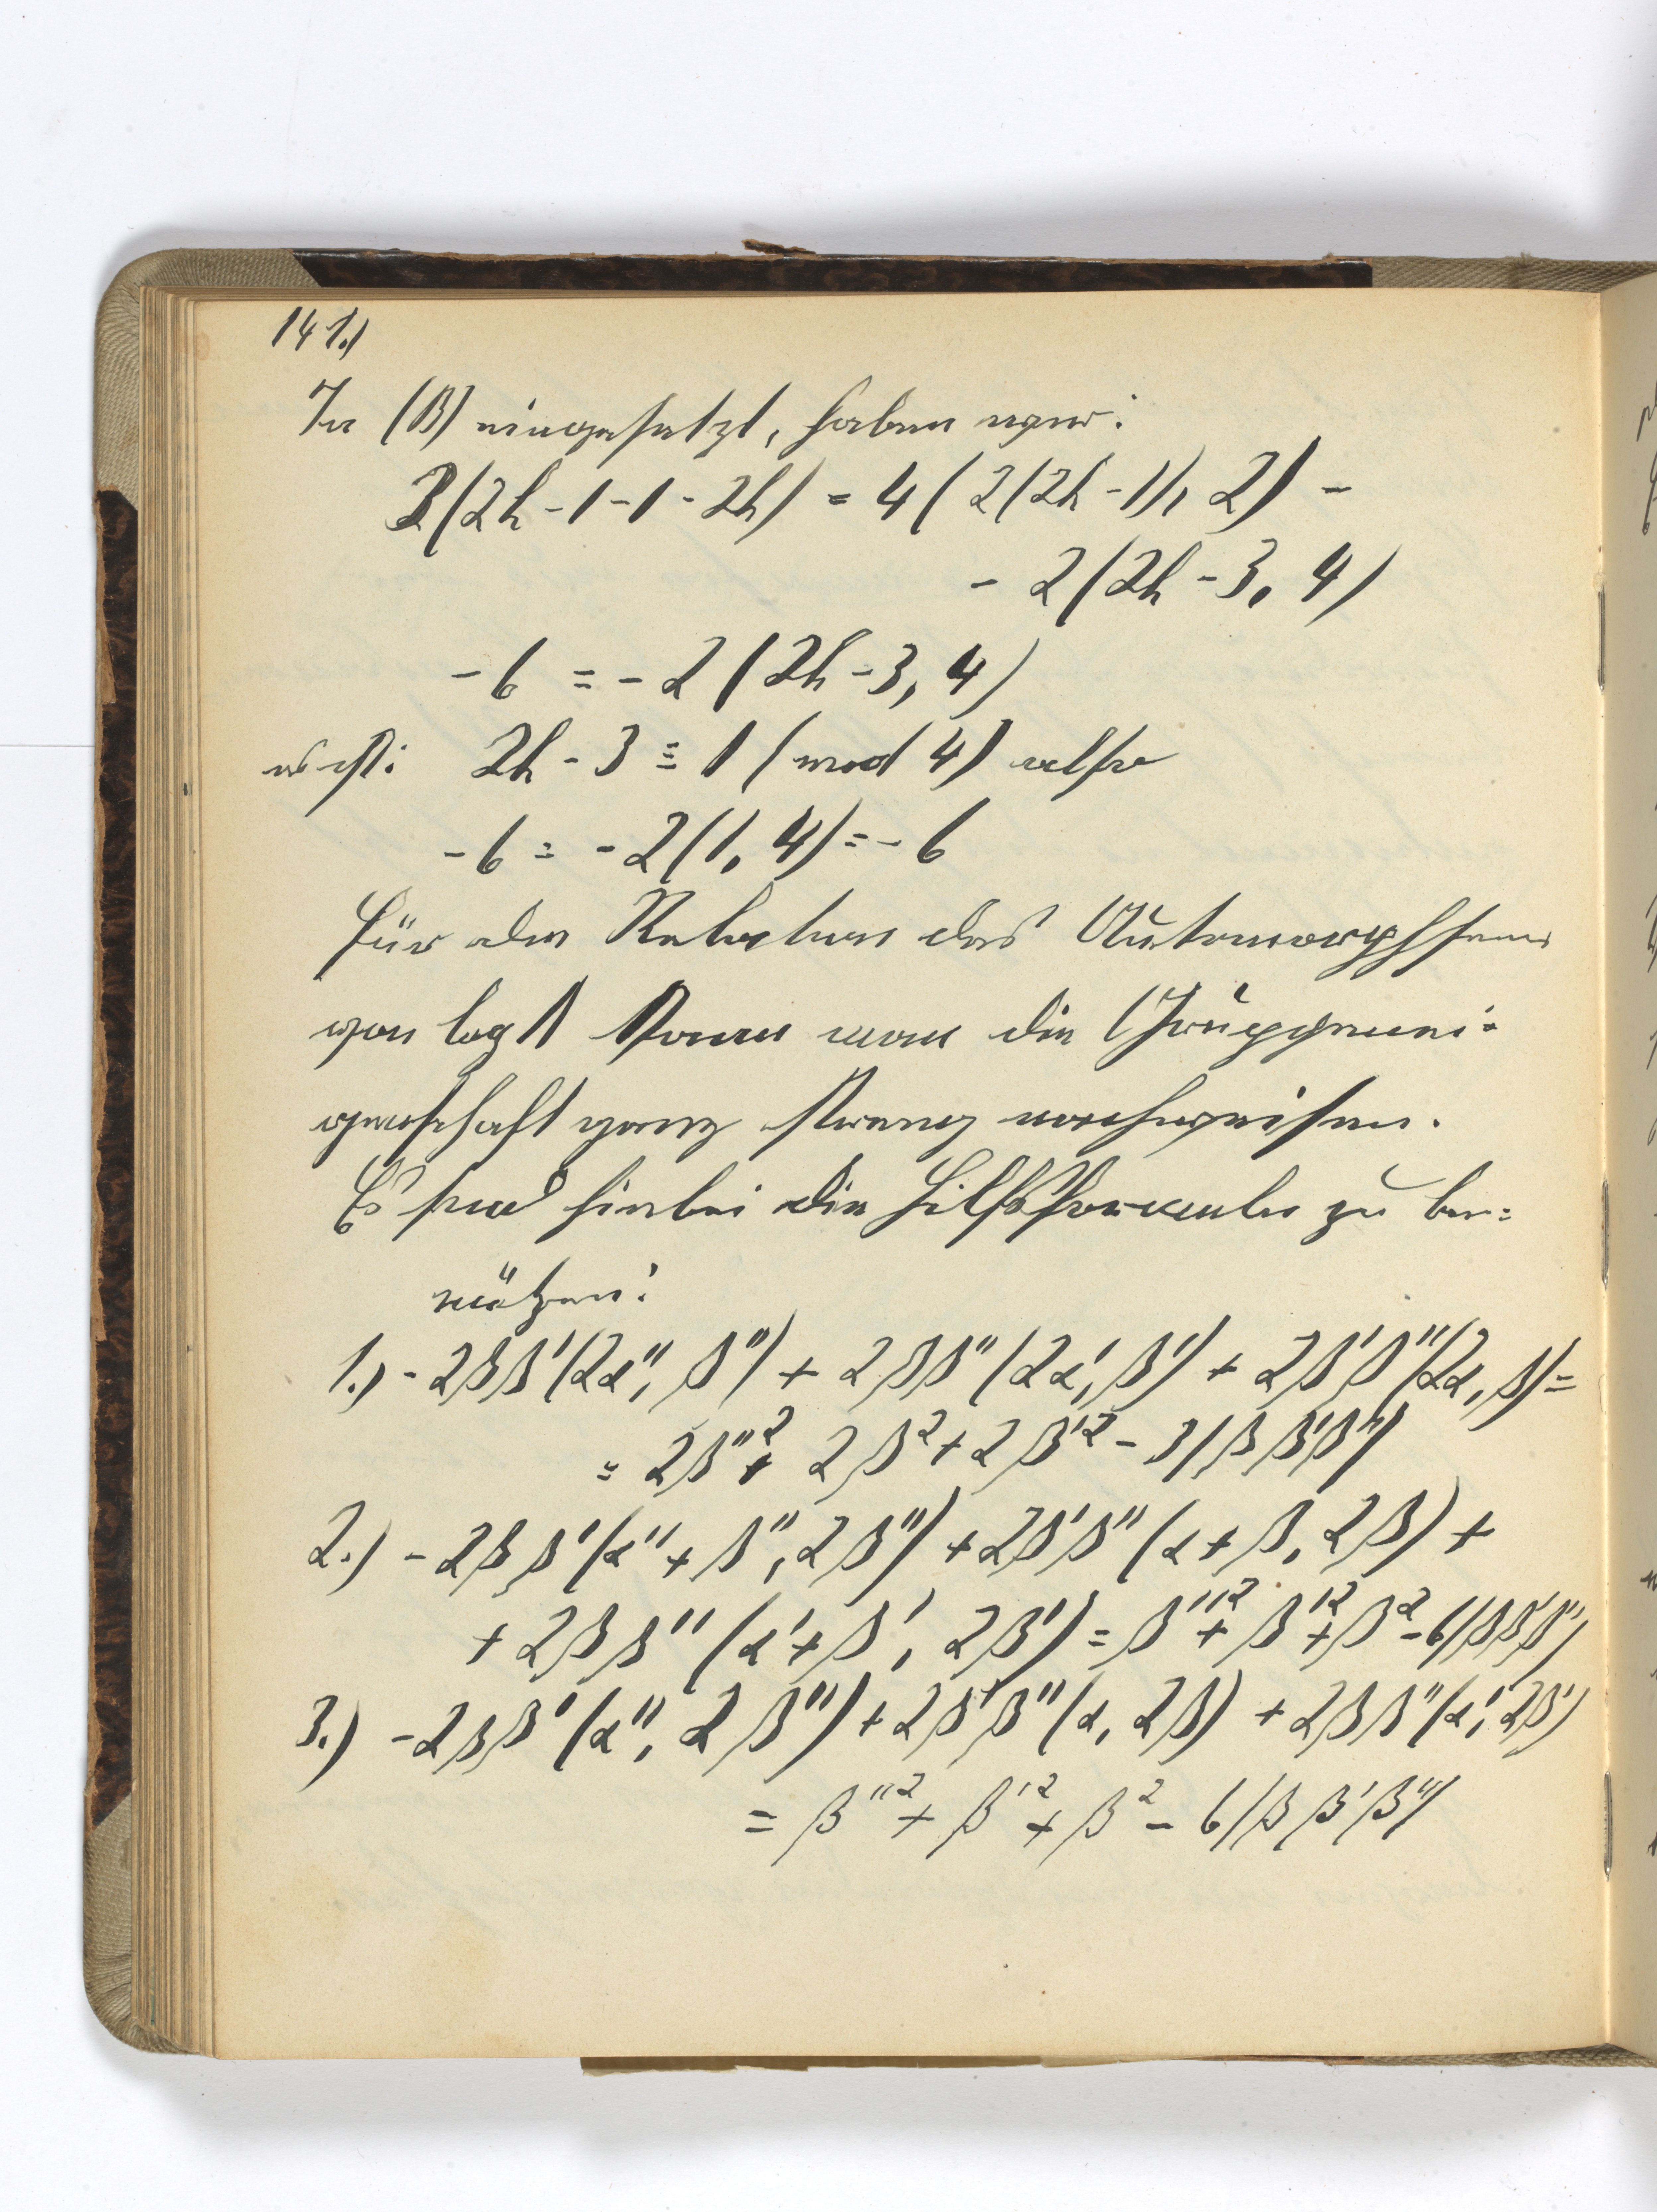 141.)
In (B) eingesetzt, haben wir:
3(2h-1-1-2h) = 4(2(2h-1), 2) -
- 2(2h-3, 4)
-6 = -2(2h-3, 4)
es ist: 2h-3 ≡ 1 (mod 4) also
-6 = -2(1, 4) = -6
Für den Rest das Automorphismen
von log kann man die Gruppenei=
genschaft ganz streng nachweisen.
Es sind hierbei die Hilfsformeln zu be=
nützen:
1.) -2ββ'(2α'', β'') + 2ββ''(2α', β') + 2β'β''(2α, β) =
= 2β''² + 2β² + 2β'² - 3(ββ'β'')
2.) -2ββ'(α''+β'', 2β'') + 2β'β''(α+β, 2β) +
+ 2ββ''(α'+β', 2β') = β''² + β'² + β² - 6(ββ'β'')
3.) -2ββ'(α'', 2β'') + 2β'β''(α, 2β) + 2ββ''(α', 2β')
= β''² + β'² + β² - 6(ββ'β'')